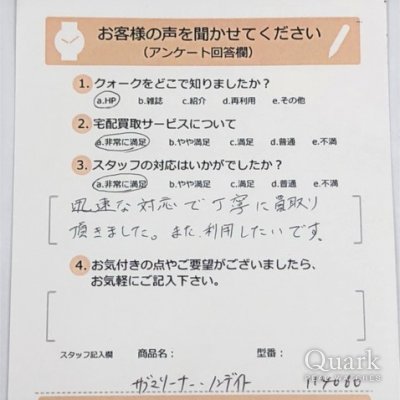 お客様の声を聞かせてください
(アンケート回答欄)
1. クォークをどこで知りましたか？
a.HP b.雑誌 c.紹介 d.再利用 e.その他
2. 宅配買取サービスについて
a.非常に満足 b.やや満足 c.満足 d.普通 e.不満
3. スタッフの対応はいかがでしたか？
a.非常に満足 b.やや満足 c.満足 d.普通 e.不満
迅速な対応で丁寧に買取り
頂きました。また利用したいです。
4. お気付きの点やご要望がございましたら、
お気軽にご記入下さい。
スタッフ記入欄 商品名： 型番：
サブマリーナー・ノンデイト 114060
Quark